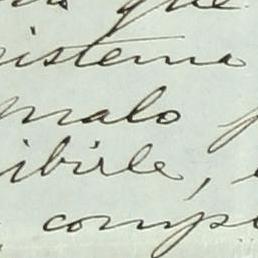 que
istema
malo
ibirle,
comp